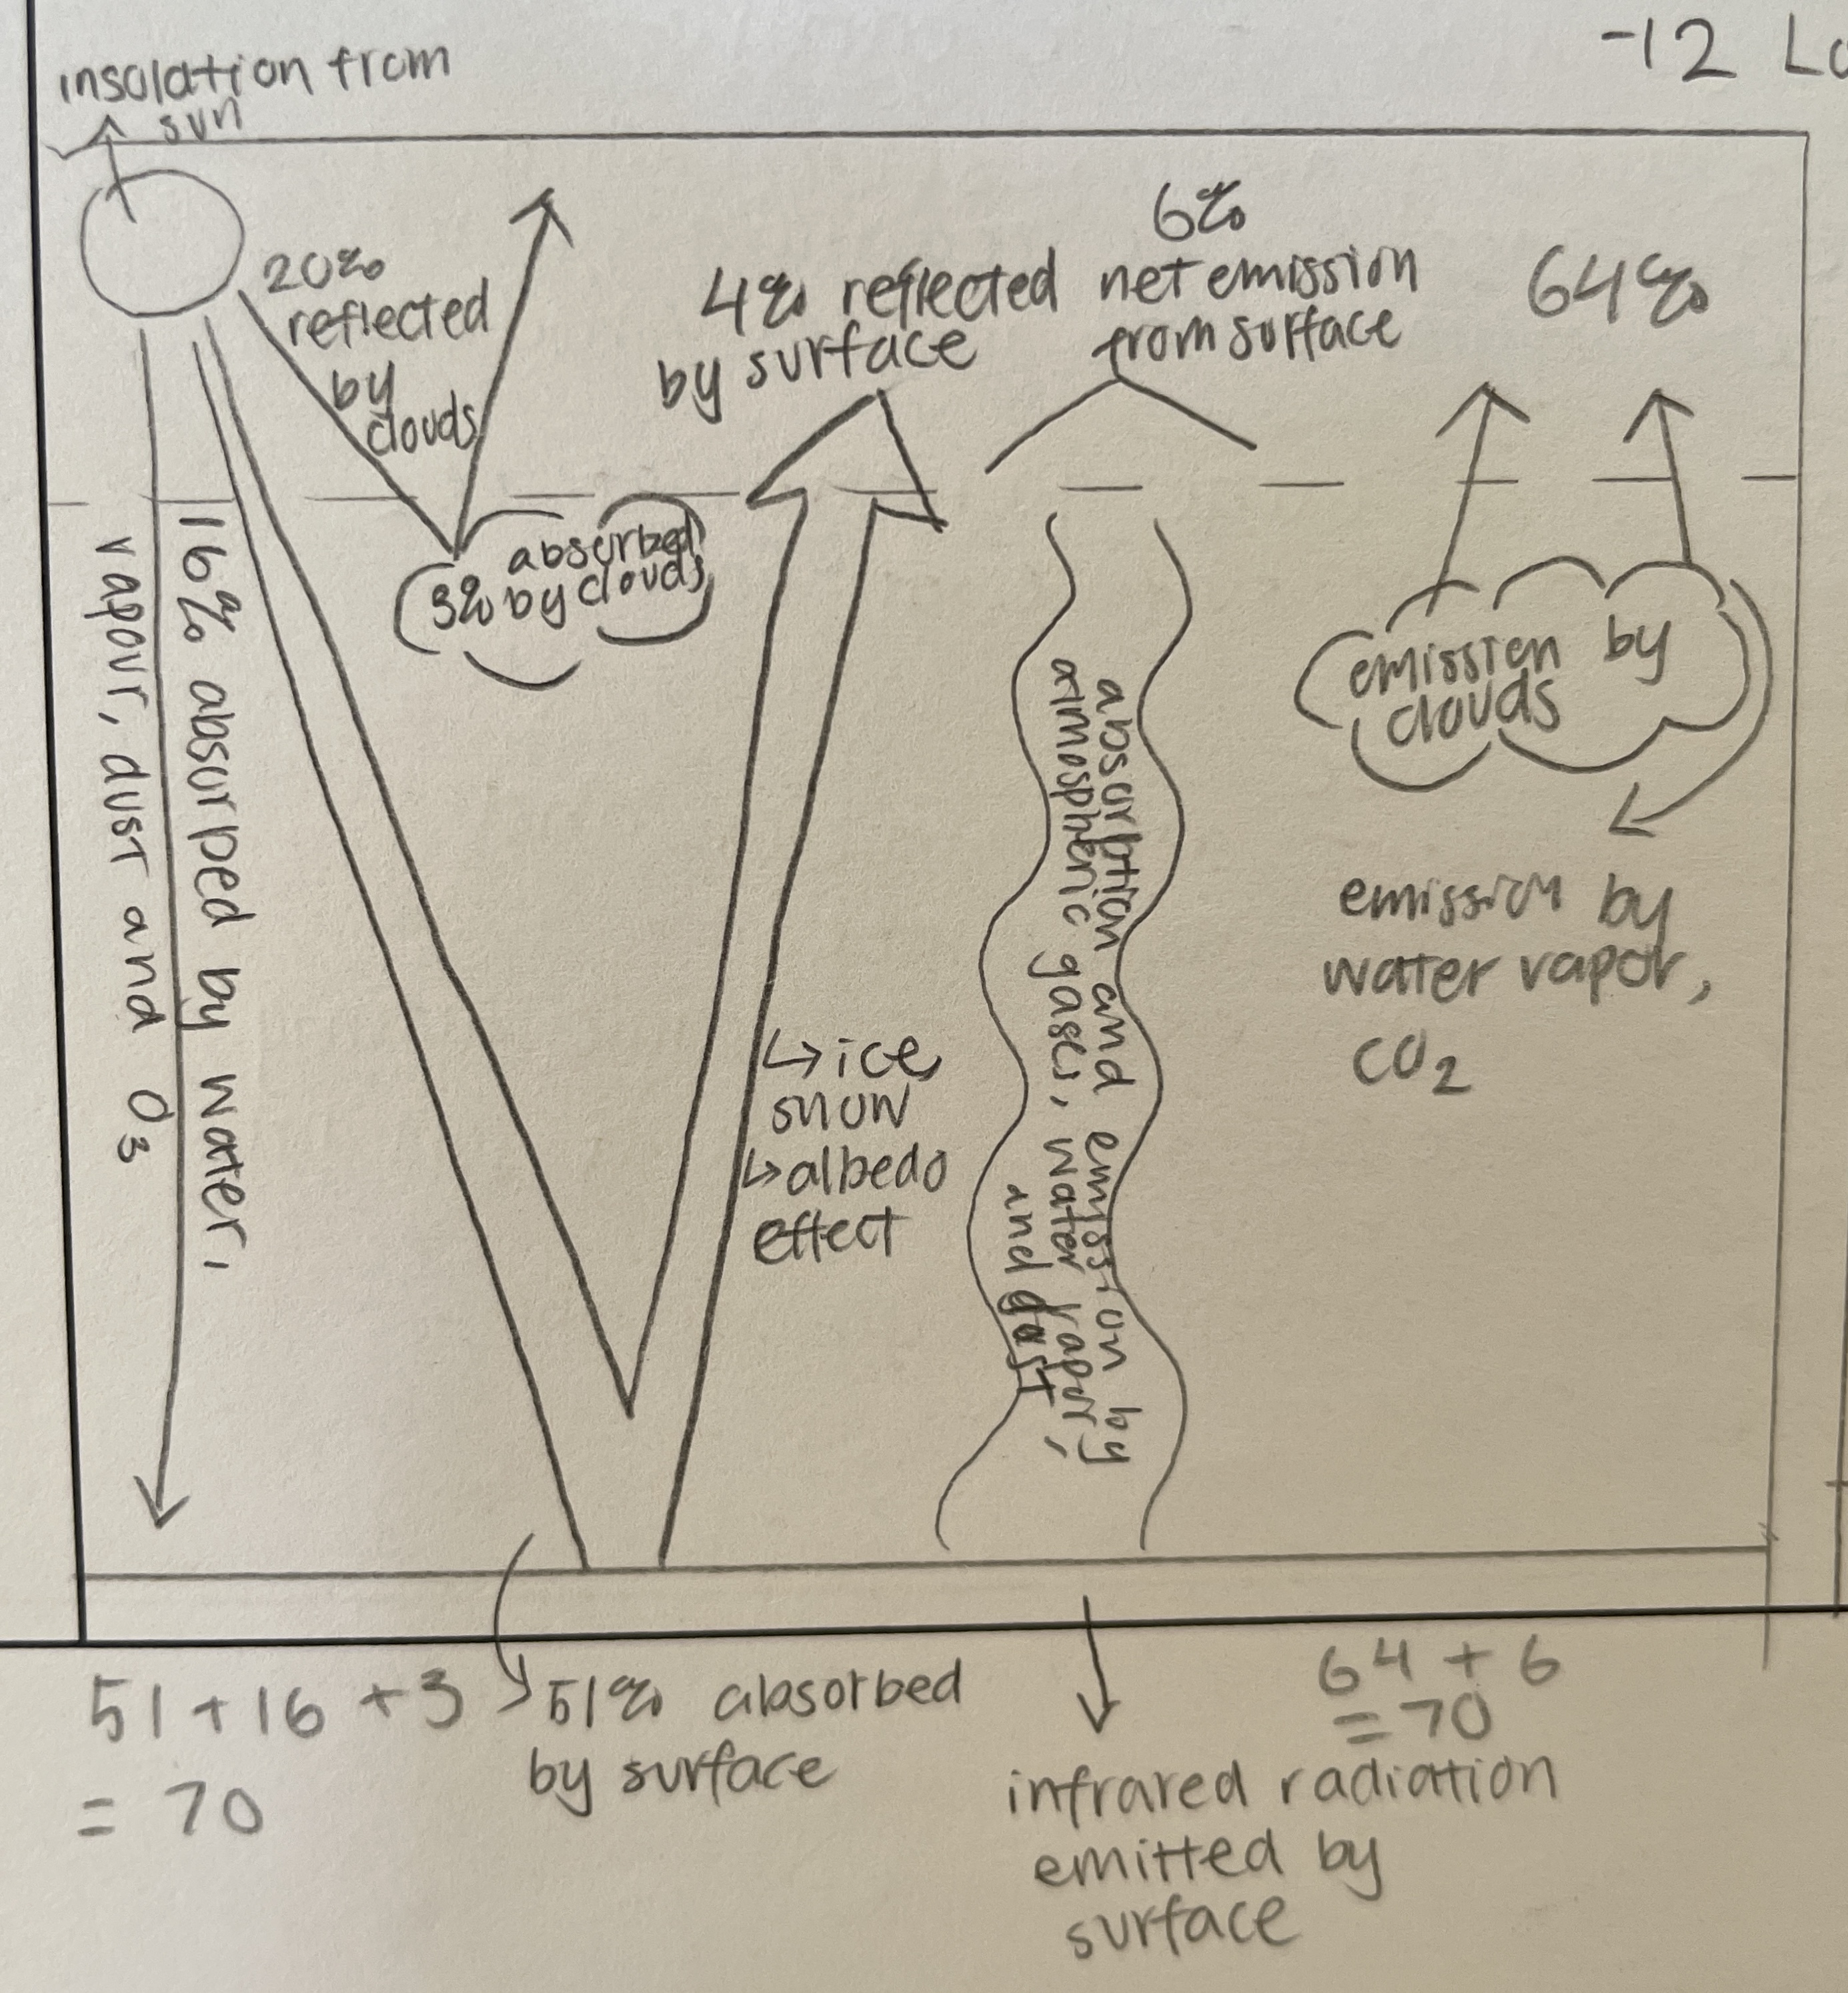 -12
insolation from
sun
20%
reflected
by
clouds
4% reflected
by surface
6%
net emission
from surface
64%
absorbed
3% by clouds
16% absorped by water,
vapour, dust and O3
emission by
clouds
emission by
water vapor,
CO2
↳ ice,
snow
↳ albedo
effect
absorbtion and emission by
atmospheric gases, water vapor,
and dust
51 + 16 + 3
= 70
51% absorbed
by surface
64 + 6
= 70
infrared radiation
emitted by
surface